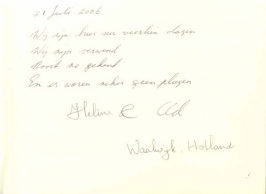 21 Juli 2006
Wij zijn hier nu veertien dagen
Wij zijn verwend
Nooit zo gekend
En er waren zeker geen plagen
Heline & Ad
Waalwijk, Holland